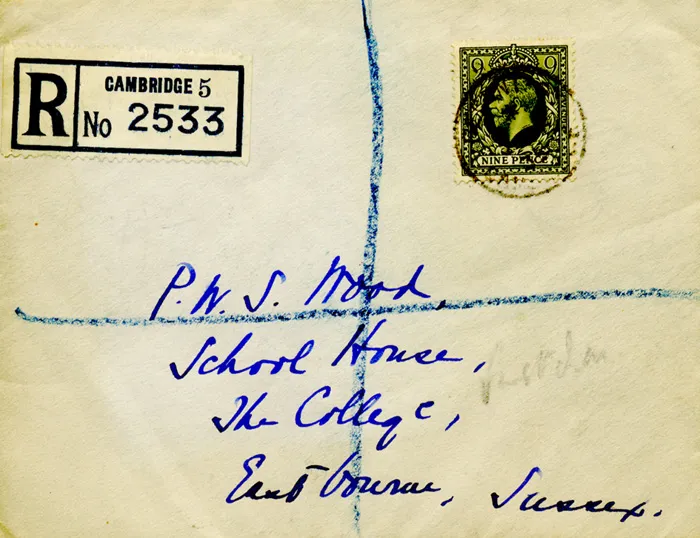 R
CAMBRIDGE 5
No 2533
9 9
NINE PENCE
P.W.S. Wood,
School House,
The College,
Eastbourne, Sussex.